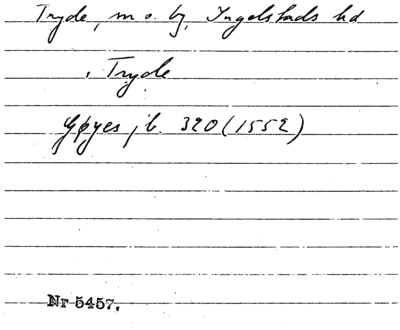 Tryde, m o. by, Ingelstads hd
. Tryde
Gøyes jb. 320 (1552)
Nr 5457.